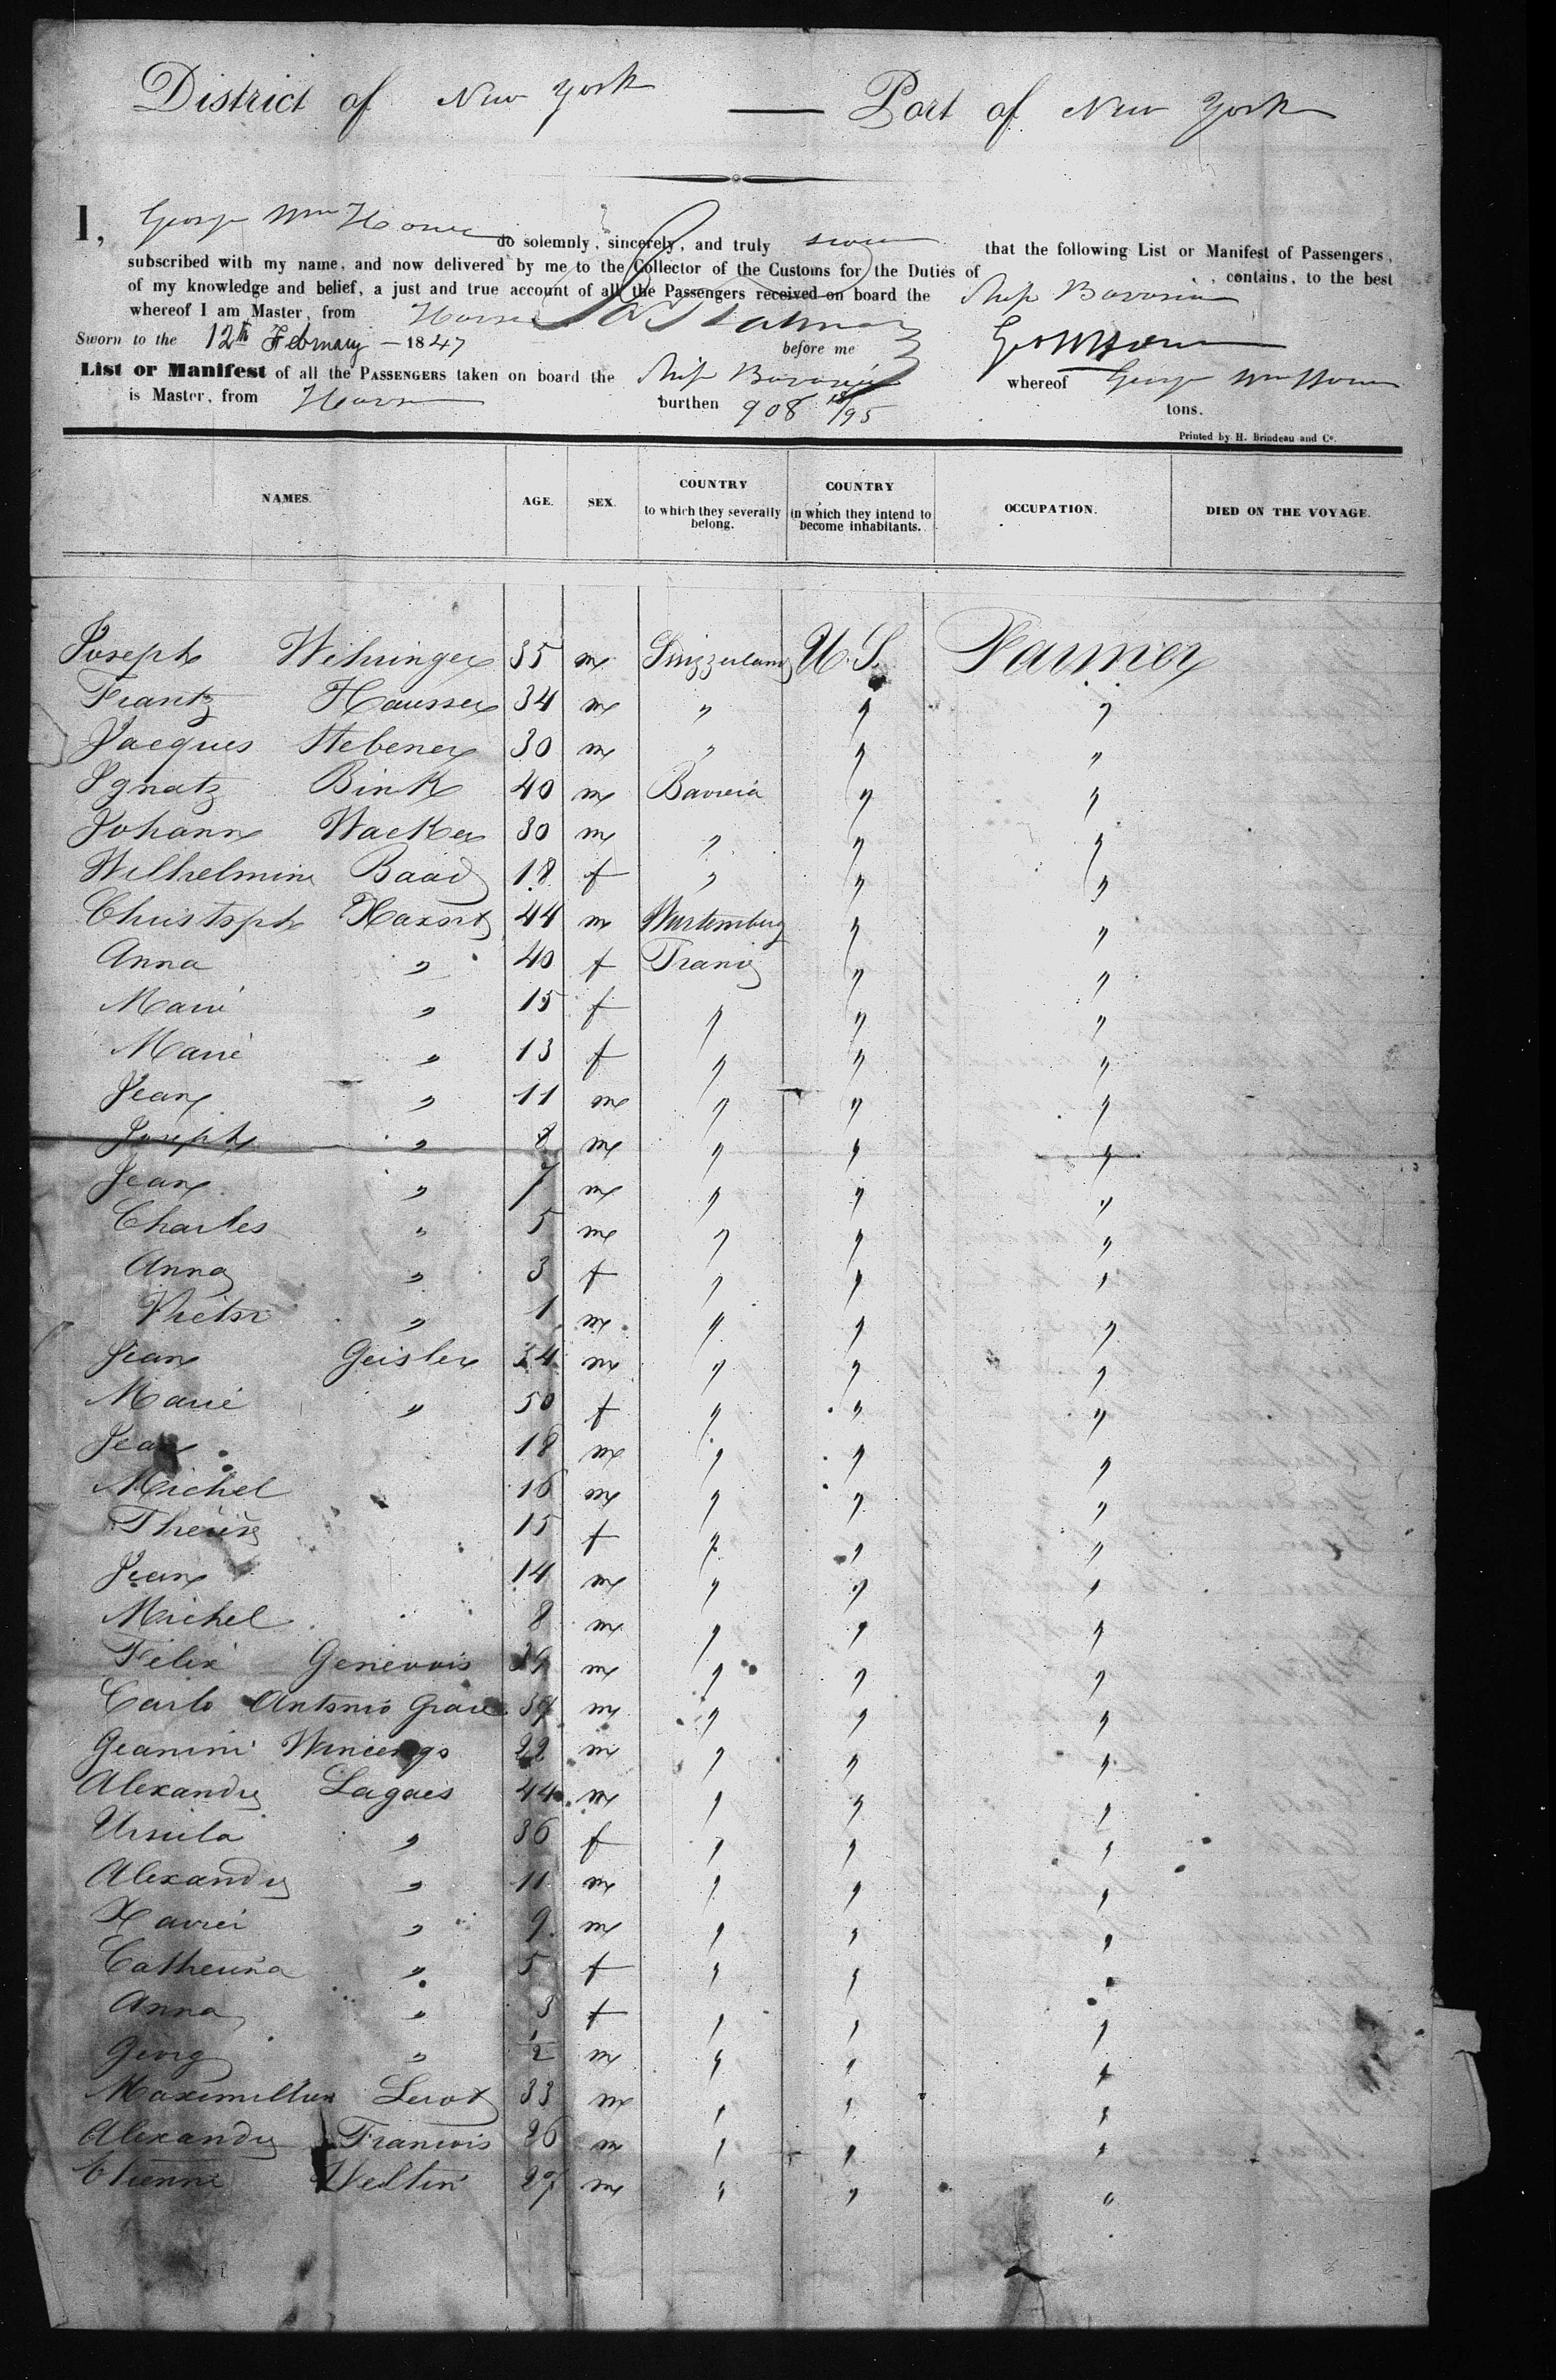 District of New York — Port of New York
I, George Wm Howe do solemnly, sincerely, and truly swear that the following List or Manifest of Passengers,
subscribed with my name, and now delivered by me to the Collector of the Customs for the Duties of
of my knowledge and belief, a just and true account of all the Passengers received on board the Ship Bavaria , contains, to the best
whereof I am Master, from Havre
Sworn to the 12th February — 1847 before me Geo W Howe
List or Manifest of all the PASSENGERS taken on board the Ship Bavaria whereof George Wm Howe
is Master, from Havre burthen 908 /95 tons.
Printed by H. Brindeau and Co.
NAMES. AGE. SEX. COUNTRY to which they severally belong. COUNTRY in which they intend to become inhabitants. OCCUPATION. DIED ON THE VOYAGE.
Joseph Wihringer 35 m Swizzerland U.S. Farmer
Frantz Hausser 34 m " " "
Jacques Stebener 30 m " " "
Ignatz Bink 40 m Bavaria " "
Johann Wacker 30 m " " "
Wilhelmine Baad 18 f " " "
Christoph 44 m Wurtemberg " "
Anna " 40 f France " "
Marie " 15 f " " "
Marie " 13 f " " "
Jean " 11 m " " "
Joseph " 8 m " " "
Jean " 7 m " " "
Charles " 5 m " " "
Anna " 3 f " " "
Victor " 1 m " " "
Jean Geisler 54 m " " "
Marie " 50 f " " "
Jean 18 m " " "
Michel 16 m " " "
Therese 15 f " " "
Jean 14 m " " "
Michel 8 m " " "
Felix Genevois 39 m " " "
Carlo Antonio 39 m " " "
Geanini 22 m " " "
Alexandre Lagaes 44 m " " "
Ursula " 36 f " " "
Alexandre " 11 m " " "
Xavier " 9 m " " "
Catherina " 5 f " " "
Anna " 3 f " " "
Georg " 1/2 m " " "
Maximilian 33 m " " "
Alexandre Francois 26 m " " "
Etienne Veltin 27 m " " "